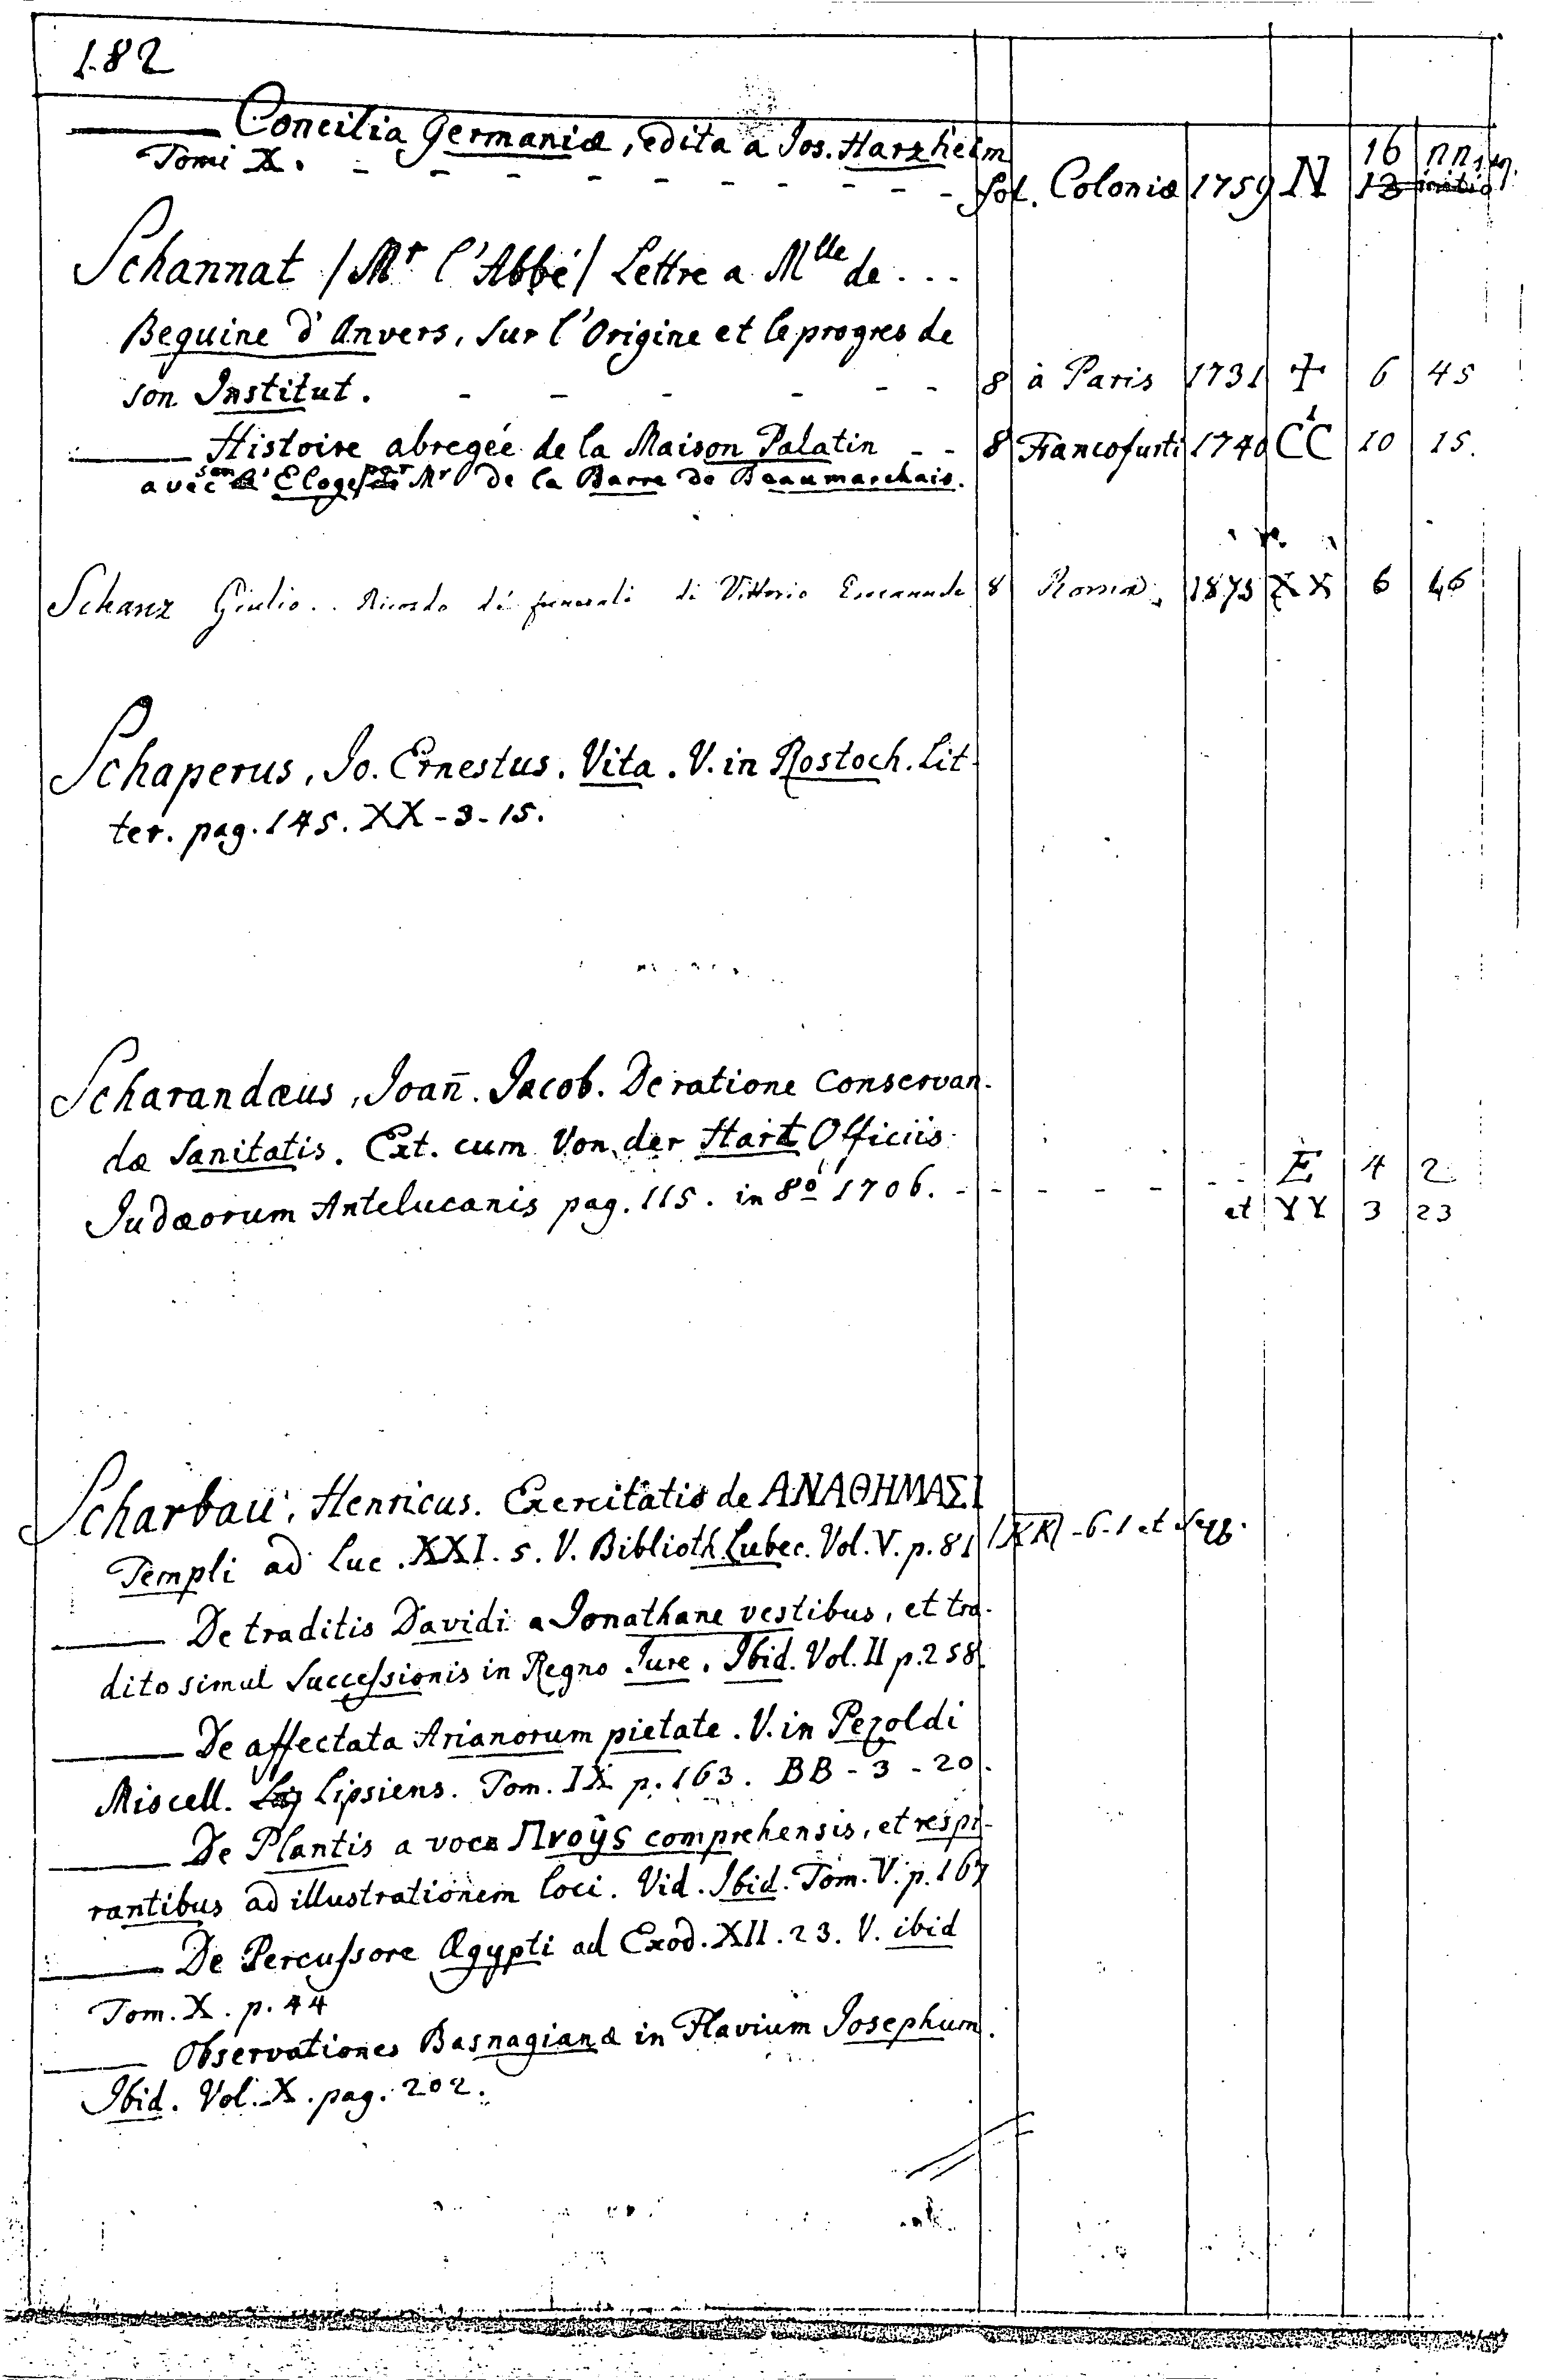 182
——— Concilia Germaniæ, edita a Jos. Harzheim
Tomi X. - - - - - - - - - fol. Coloniæ 1759 N 16 nn. 1. seq.
13 initio
Schannat /Mr l'Abbé/ Lettre a Mlle de . . .
Beguine d'Anvers, sur l'Origine et le progres de
son Institut. - - - - - - 8 à Paris 1731 + 6 45
——— Histoire abregée de la Maison Palatin - - 8 Francofurti 1740 CC 10 15.
avec son Eloge par Mr de la Barre de Beaumarchais.
Schanz Giulio. . Ricordo dei funerali di Vittorio Emanuele 8 Roma 1878 XX 6 46
Schaperus, Jo. Ernestus. Vita. V. in Rostoch. Lit-
ter. pag. 145. XX-3-15.
Scharandæus, Joan̄. Jacob. De ratione conservan-
dæ sanitatis. Ext. cum Von der Hart Officiis
Judæorum Antelucanis pag. 115. in 8º 1706. - - - - - - - E 4 2
et YY 3 23
Scharbau, Henricus. Exercitatio de ΑΝΑΘΗΜΑΣΙ
Templi ad Luc. XXI. 5. V. Biblioth. Lubec. Vol. V. p. 81 /XX/ -6-1 et seqq.
——— De traditis Davidi a Jonathane vestibus, et tra-
dito simul successionis in Regno Jure. Ibid. Vol. II p. 258.
——— De affectata Arianorum pietate. V. in Pezoldi
Miscell. Lipsiens. Tom. IX p. 163. BB-3-20.
——— De Plantis a voce Πνοῆς comprehensis, et respi-
rantibus ad illustrationem loci. Vid. Ibid. Tom. V. p. 167
——— De Percussore Ægypti ad Exod. XII. 23. V. ibid
Tom. X. p. 44
——— Observationes Basnagianæ in Flavium Josephum.
Ibid. Vol. X. pag. 202.